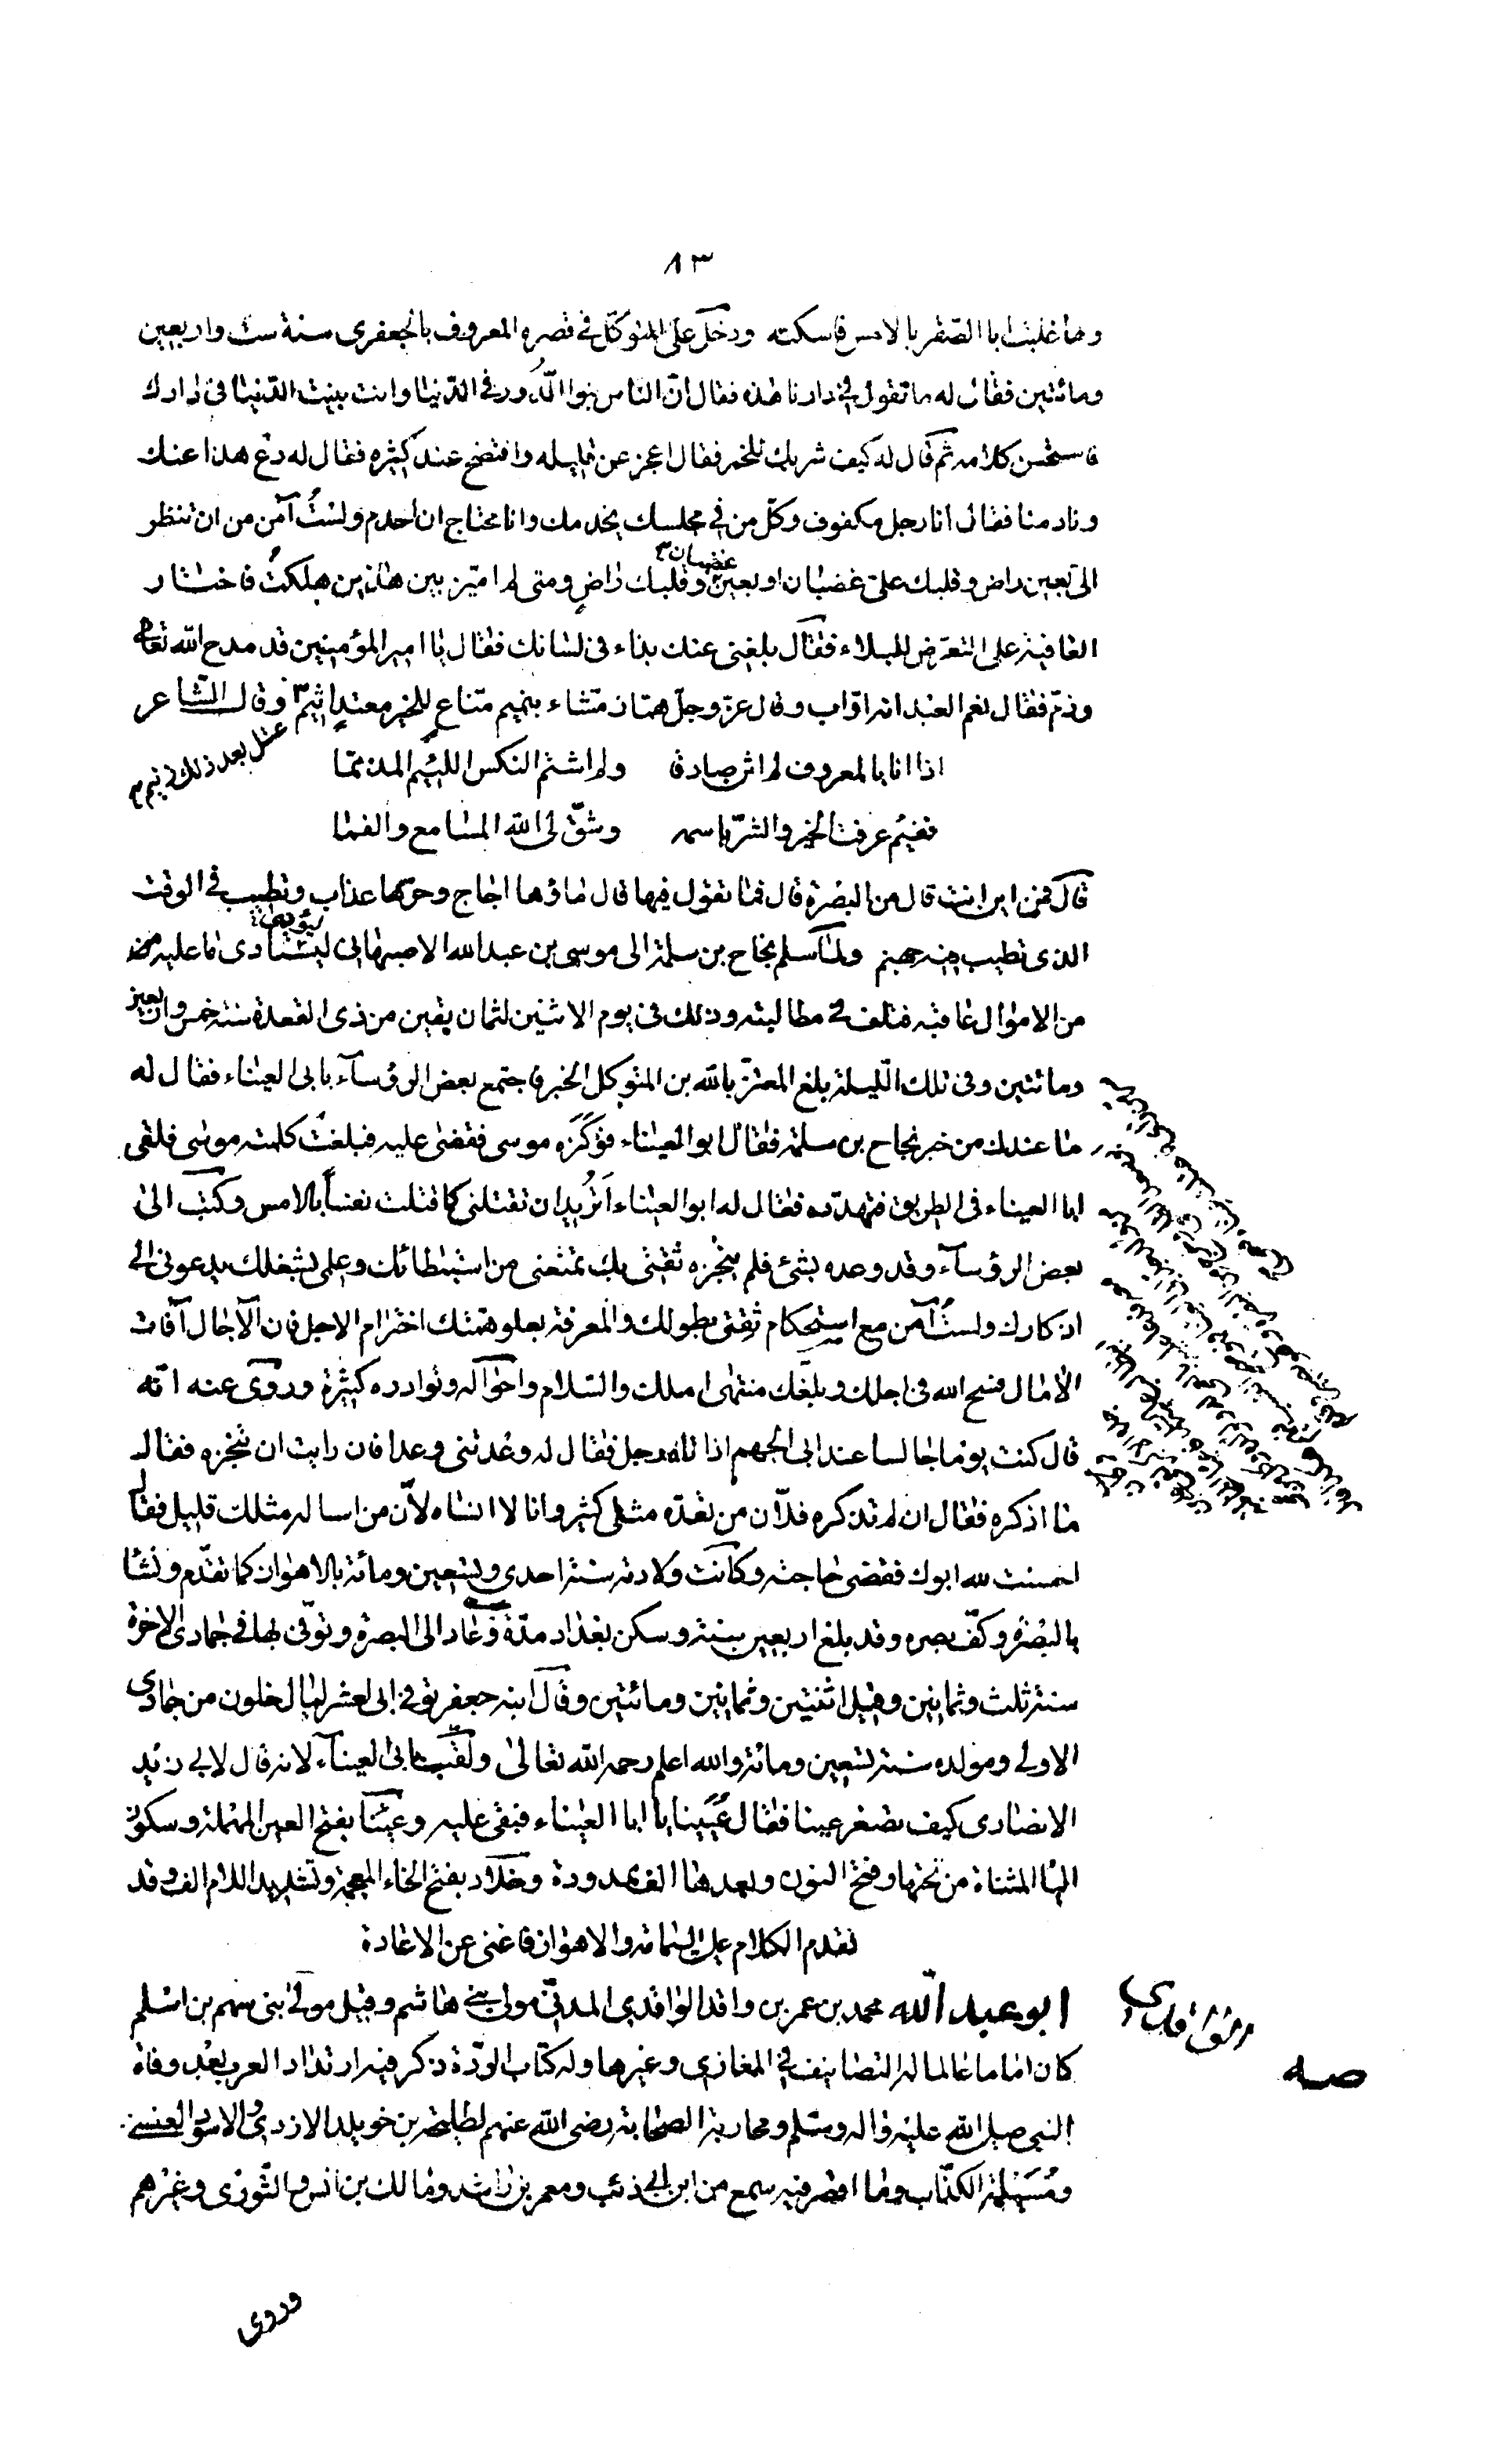 ٨٣
وما غلبت ابا الصقر بالامس فاسكته ودخل على المتوكل في قصره المعروف بالجعفرى سنة ست واربعين
ومائتين فقال له ما تقول في دارنا هذه فقال انّ الناس بنوا الدُّور في الدّنيا وانت بنيت الدّنيا في دارك
فاستحسن كلامه ثم قال له كيف شربك للخمر فقال اعجز عن قليله وافتضح عند كثيره فقال له دع هذا عنك
ونادمنا فقال انا رجل مكفوف وكلّ من في مجلسك يخدمك وانا محتاج ان اخدم ولستُ آمن من ان تنظر
الىّ بعين راض وقلبك علىّ غضبان او بعين غضبان وقلبك راضٍ ومتى لم اميّز بين هاذين هلكتُ فاختار
العافية على التعرّض للبلاء فقال بلغنى عنك بذاء في لسانك فقال يا امير المؤمنين قد مدح الله تعالى
وذمّ فقال نعم العبد انه اوّاب وقال عزّ وجلّ همّاز مشّاء بنميم منّاع للخير معتدٍ اثيم وقال الشاعر
عتل بعد ذلك زنيم
اذا انا بالمعروف لم اثن صادقا ولم اشتم النكس اللئيم المذمّما
ففيم عرفت الخير والشرّ باسمه وشقّ لى الله المسامع والفما
قال فمن اين انت قال من البصرة قال فما تقول فيها قال ماؤها اجاج وحرّها عذاب وتطيب في الوقت
الذى تطيب فيه جهنم ولما سلم نجاح بن سلمة الى موسى بن عبد الله الاصبهانى ليستادى ما عليه
من الاموال عاقبه فتلف في مطالبته وذلك في يوم الاثنين لثمان بقين من ذى القعدة سنة خمس واربعين
ومائتين وفي تلك اللّيلة بلغ المعتزّ بالله بن المتوكل الخبر فاجتمع بعض الرؤسآء بابى العيناء فقال له
ما عندك من خبر نجاح بن سلمة فقال ابو العيناء فوكزه موسى فقضى عليه فبلغت كلمته موسى فلقى
ابا العيناء في الطريق فتهدّده فقال له ابو العيناء اتُريد ان تقتلنى كما قتلت نفساً بالامس وكتب الى
بعض الرؤسآء وقد وعده بشئ فلم ينجزه ثقتى بك تمنعنى من استبطائك وعلمى بشغلك يدعونى الى
اذكارك ولستُ آمن مع استحكام ثقتى بطولك والمعرفة بعلو همّتك اخترام الاجل فان الآجال آفات
الآمال فسح الله في اجلك وبلّغك منتهى املك والسّلام واحواله ونوادره كثيرة وروى عنه انّه
قال كنت يوما جالسا عند ابى الجهم اذا تاه رجل فقال له وعدتنى وعدا فان رايت ان تنجزه فقال
ما اذكره فقال ان لم تذكره فلانّ من تعده مثلى كثير وانا لا انساه لانّ من اساله مثلك قليل فقال
احسنت لله ابوك فقضى حاجته وكانت ولادته سنة احدى وتسعين ومائة بالاهواز كما تقدّم ونشا
بالبصرة وكفّ بصره وقد بلغ اربعين سنة وسكن بغداد مدّة وعاد الى البصرة وتوفّى بها في جمادى الاخرة
سنة ثلث وثمانين وقيل اثنتين وثمانين ومائتين وقال ابنه جعفر توفى ابى لعشر ليال خلون من جمادى
الاولى ومولده سنة تسعين ومائة والله اعلم رحمه الله تعالى ولقّب بابى العيناء لانه قال لابى زيد
الانصارى كيف تصغر عينا فقال عُيَينا يا ابا العيناء فبقى عليه وعينا بفتح العين المهملة وسكون
اليا المثناة من تحتها وفتح النون وبعدها الف ممدودة وخلّاد بفتح الخاء المعجمة وتشديد اللام الف وقد
تقدم الكلام على اليمامة والاهواز فاغنى عن الاعادة
ابو عبد الله محمد بن عمر بن واقد الواقدى المدنىّ مولى بنى هاشم وقيل مولى بنى سهم بن اسلم
الواقدى
صه
كان اماما عالما له التصانيف في المغازى وغيرها وله كتاب الردّة ذكر فيه ارتداد العرب بعد وفاة
النبى صلى الله عليه واله وسلم ومحاربة الصحابة رضى الله عنهم لطليحة بن خويلد الازدى والاسود العنسى
ومُسَيلمة الكذّاب وما اقصر فيه سمع من ابن ابى ذئب ومعمر بن راشد ومالك بن انس والثّورى وغيرهم
وروى